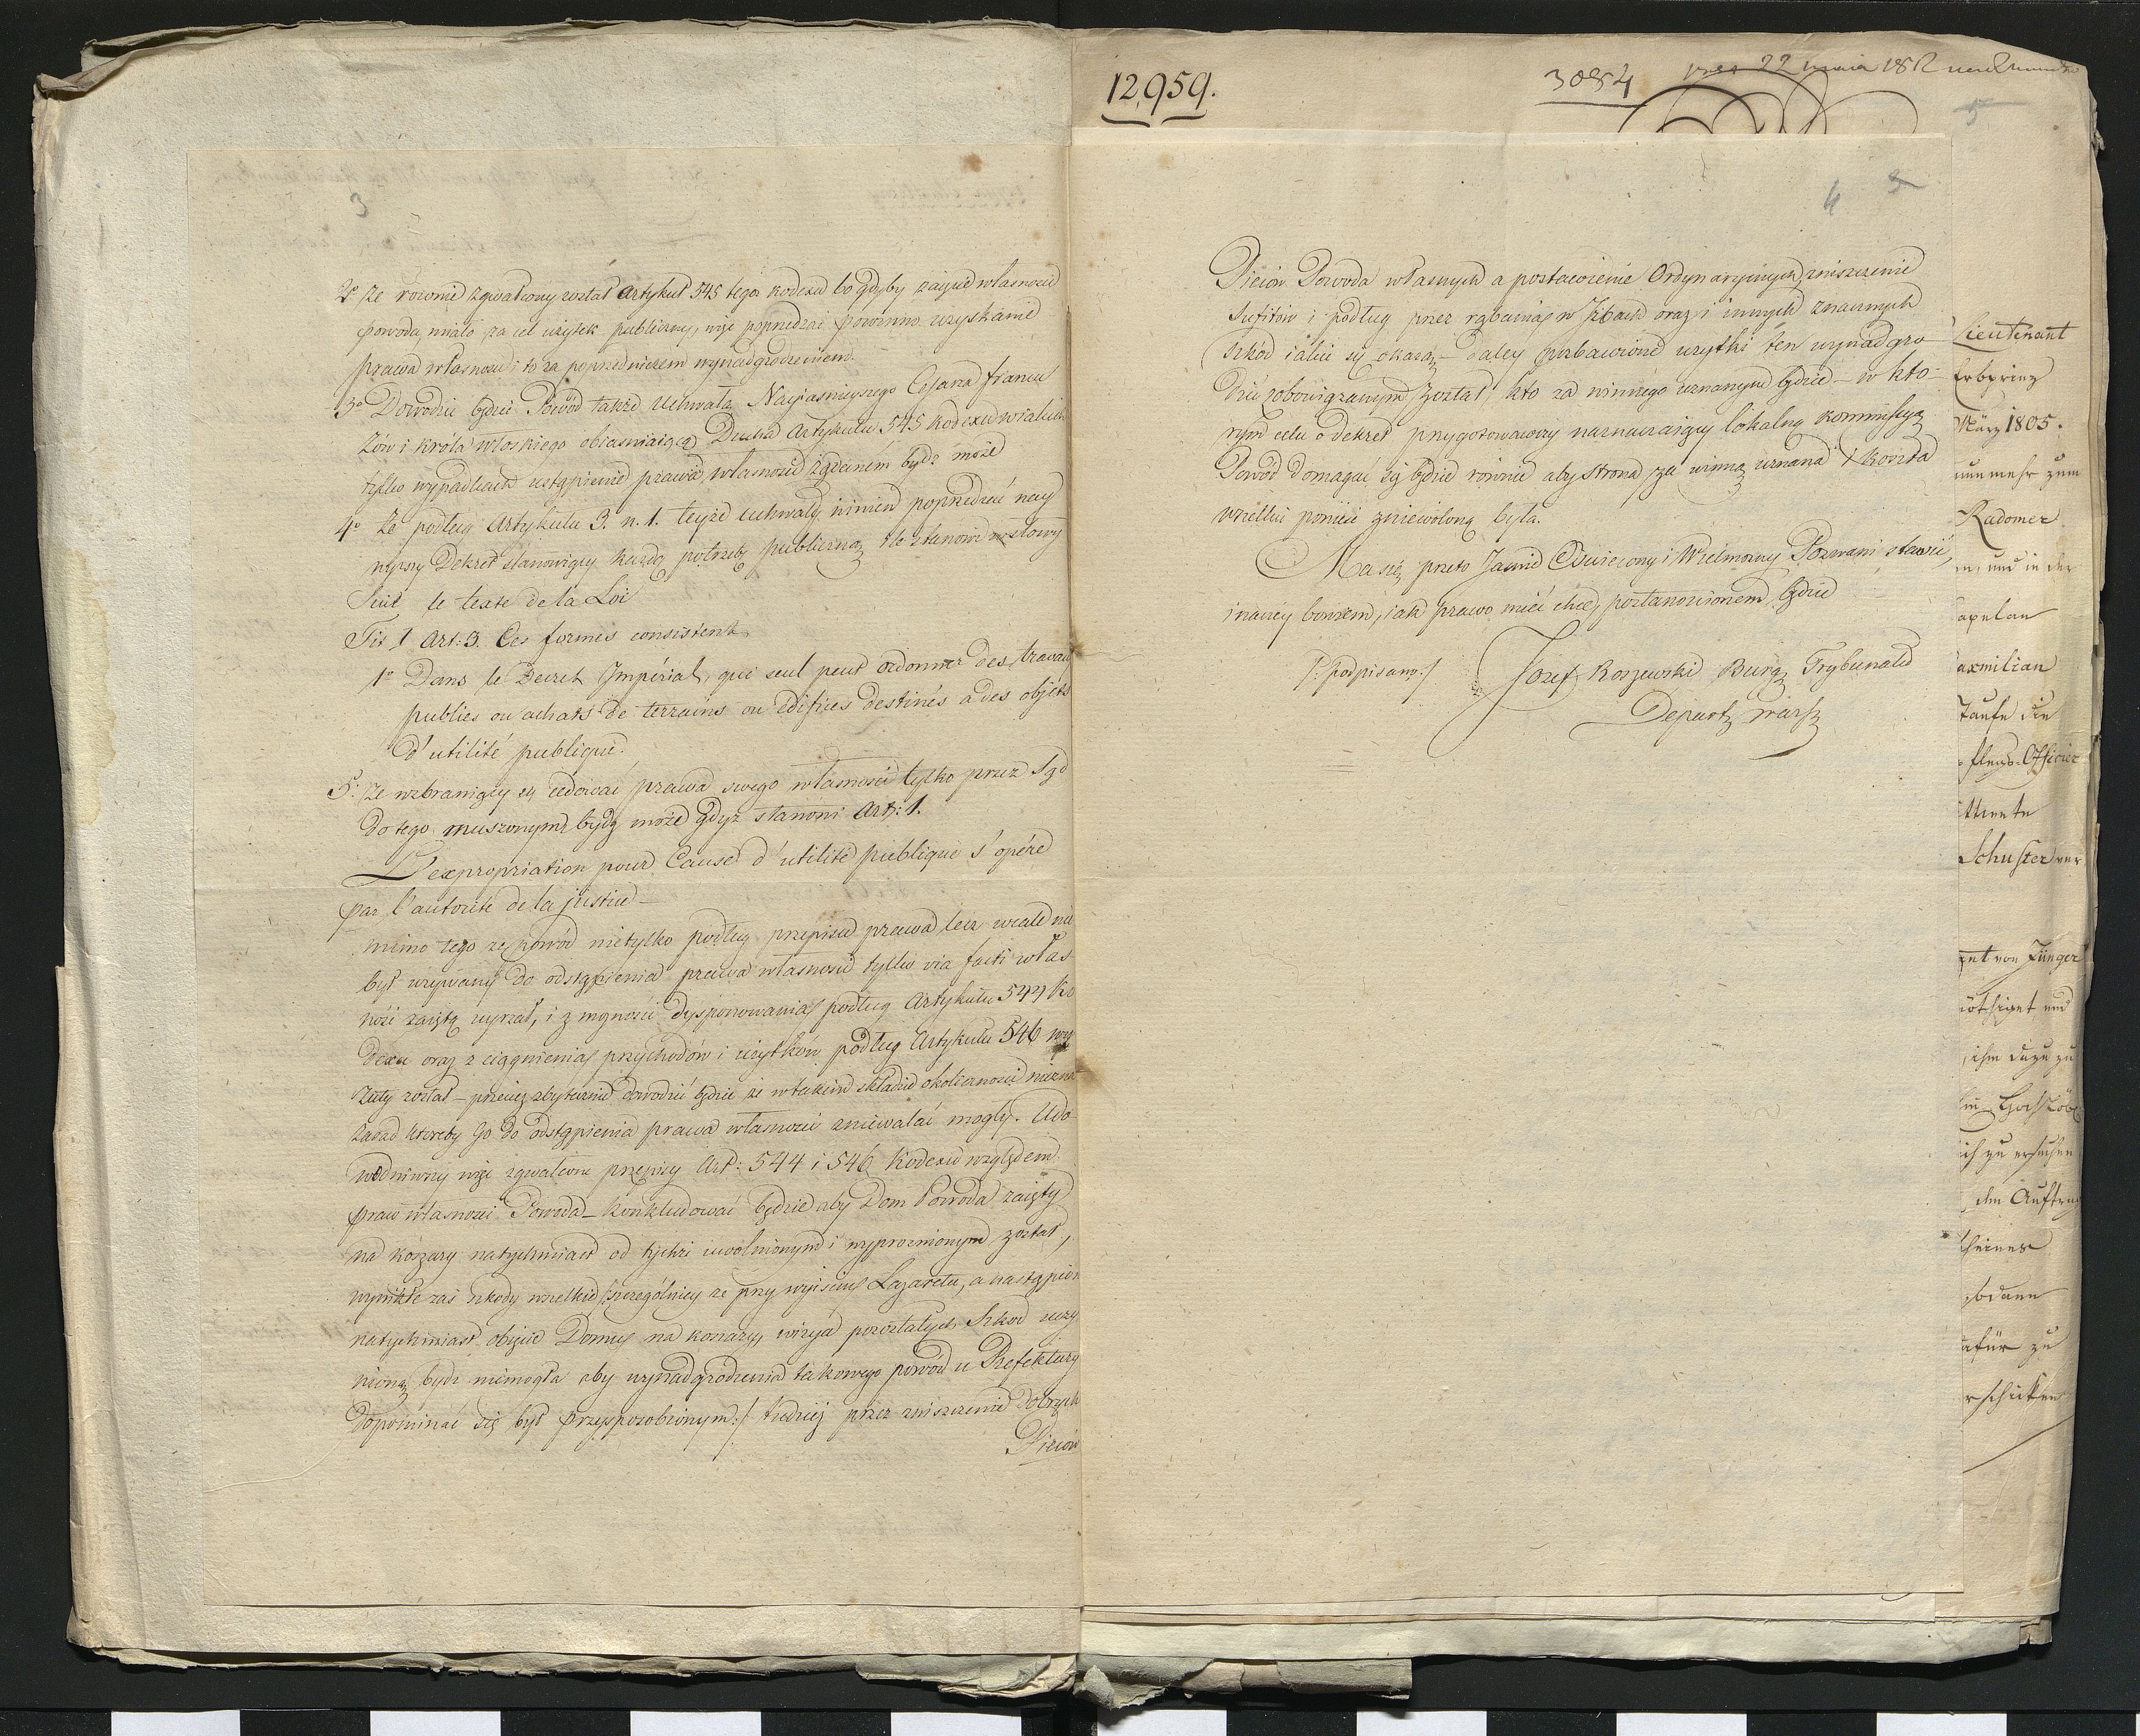 3
2o że rownie zgwałcony został Artykuł 545 tegoż kodexu bo gdyby zajęcie własności
powoda, miało za cel użytek publiczny, więc poprzedzać powinno uzyskanie
prawa własności i to za poprzedniczem wynadgrodzeniem.
3o Dowodzić będzie Powód także Uchwałą Nayiasnieyszego Cesarza francu
zów i króla włoskiego obiasniaiącą Ducha Artykułu 545 kodexu w iakich
tylko wypadkach ustąpienie prawa własności żądanem bydź może
4o że podług Artykułu 3. n. 1. teyże uchwały winien poprzedzać nay
wyższy Dekret stanowiący każdą potrzebę publiczną ile stanowi w słowy
Suit le texte de la Loi
Tit 1 Art: 3. Ces formes consistent
1o Dans le Decret Impérial, qui seul peut ordonner des travau
publics ou achats de terrains ou édifices destinés a des objets
d'utilité publique.
5o że wzbraniaiący się cedować prawa swego własności tylko przez Sąd
do tego muszonym bydź może gdyż stanowi Art: 1.
L'expropriation pour Cause d'utilité publique s'opére
par l'autorité de la justice —
mimo tego że powód nietylko podług przepisu prawa lecz wcale nie
był wzywany do odstąpienia prawa własności tylko via facti włas-
ność zaiętą uyrzał, i z mgności dysponowania podług Artykułu 544 Ko
dexu oraz z ciągnienia przychodów i użytków podług Artykułu 546 wyz
zuty został – przeciez zbytecznie dowodzić będzie że w takim składzie okoliczności niema
zasad ktoreby Go do odstąpienia prawa własności zniewalać mogły. Udo-
wodniwszy więc zgwałcone przepisy Art: 544 i 546 Kodexu względem
praw własności Powoda – konkludować będzie aby Dom Powoda zaięty
na koszary natychmiast od tychże uwolnionym i wyprożnionym został,
wynikłe zaś szkody wszelkie /: szczególniey że przy wyiściu Lazaretu, a nastąpion
natychmiast obięcie Domu na koszary, wizya pozostałych Szkod uczy
nioną bydź niemogła aby wynadgrodzenia takowego powód u Prefektury
dopominać się był przysposobionym :/ tudzież przez zniszczenie dobrych
Pieców
12,959.
3084
22 maia 1812
5
4 3
Pieców Powoda własnych a postawienie Ordynaryinych, zniszczenie
Sufitów i podług przez rąbanie w Izbach oraz i innych znacznych
Szkód iakie się okażą – daley pozbawione użytki ten wynadgro-
dzić zobowiązanym został, kto za winnego uznanym będzie – w kto-
rym celu o dekret przygotowawczy naznaczaiący lokalną kommissyą
Powód domagać się będzie rownie aby Strona za winną uznana i koszta
wszelkie ponieść zniewoloną była.
Ma się przeto Jasnie Oświecony i Wielmożny Pozwani stawić,
inaczey bowiem, iak prawo mieć chce, postanowionem będzie
/: podpisano :/ Jozef Koszewski Burg Trybunału
Departz Warsz
Lieutenant
Erbprinz
März 1805.
nunmehr zum
Radomer
in, und in der
apelan
aximilian
Taufe die
pflegs-Officier
ittwete
Schuster
von Jünger
öthiget und
, ihm dazu zu
ich zu ersuchen
den Auftrag
afür zu
rschicken